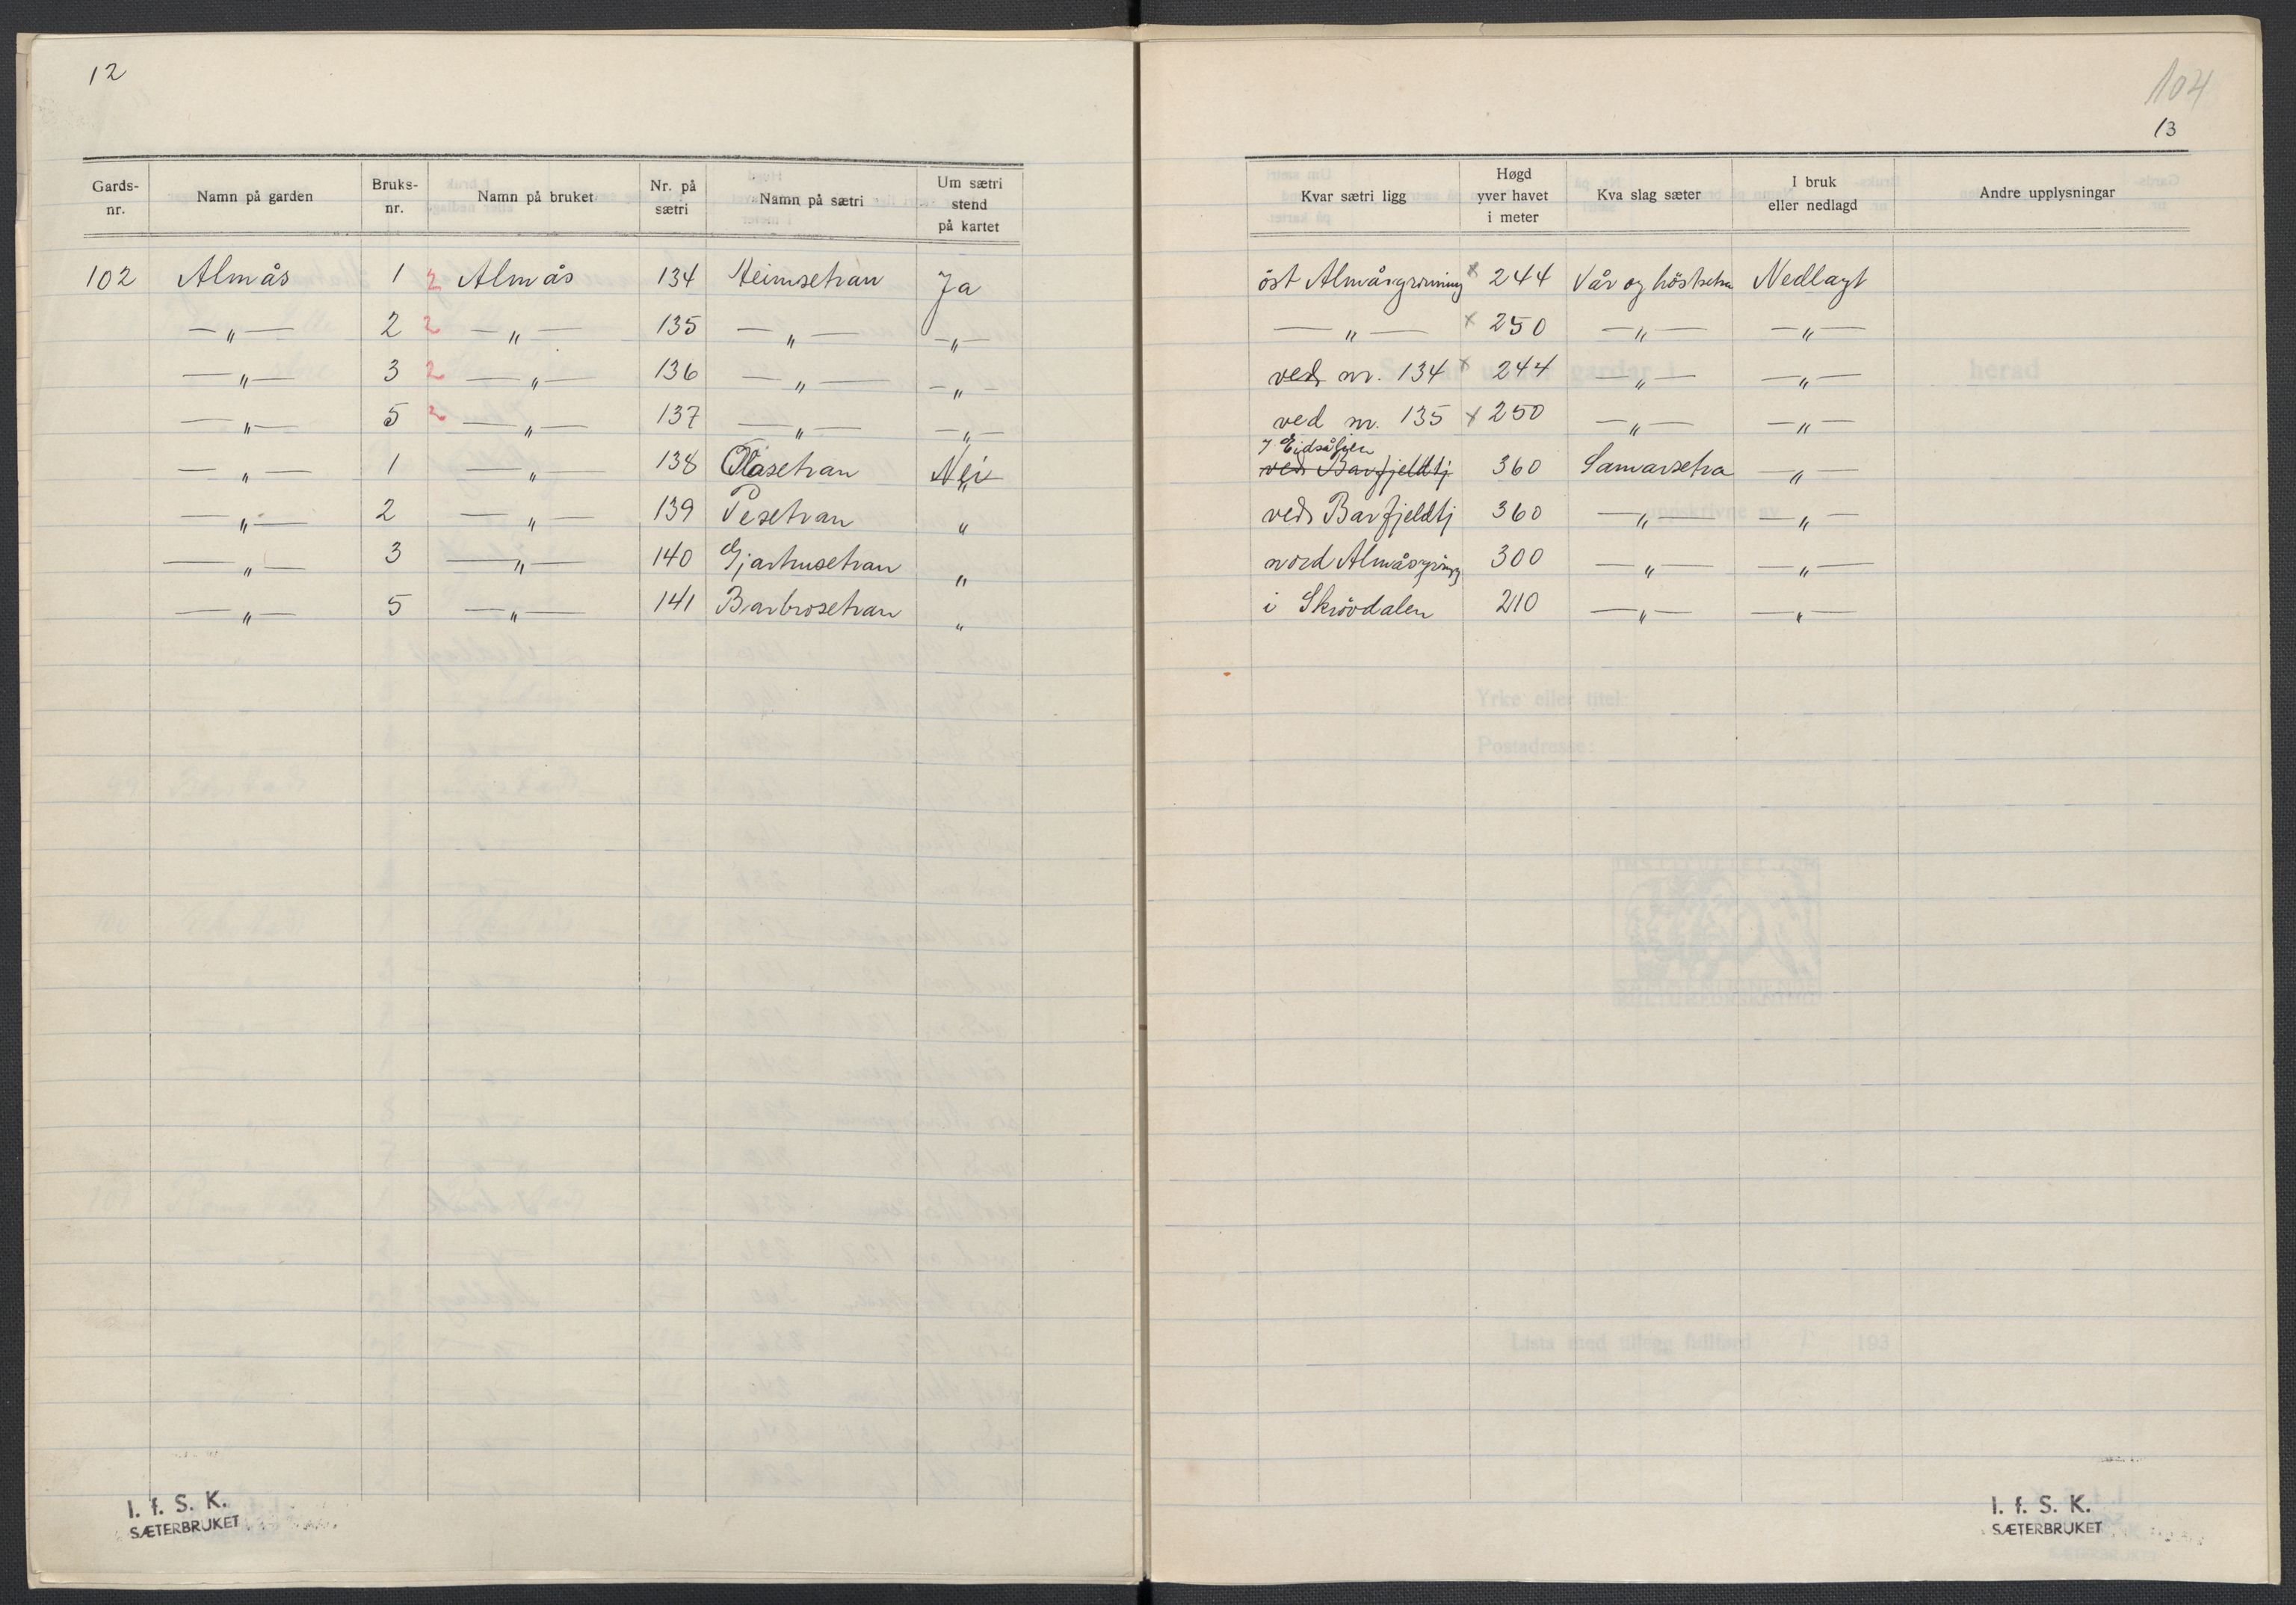 12
Gards-nr. Namn på garden Bruks-nr. Namn på bruket Nr. på sætri Namn på sætri Um sætri stend på kartet
102 Almås 1 2 Almås 134 Heimsetran Ja
—„— 2 2 —„— 135 —„— —„—
—„— 3 2 —„— 136 —„— —„—
—„— 5 2 —„— 137 —„— —„—
—„— 1 —„— 138 Olasetran Nei
—„— 2 —„— 139 Pesetran „
—„— 3 —„— 140 Gjarhusetran „
—„— 5 —„— 141 Barbrosetran „
I. f. S. K.
SÆTERBRUKET
104
13
Kvar sætri ligg Høgd yver havet i meter Kva slag sæter I bruk eller nedlagd Andre upplysningar
öst Almåsgrinning x 244 Vår og höstsetra Nedlagt
—„— x 250 —„— —„—
ved nr. 134 x 244 —„— —„—
ved nr. 135 x 250 —„— —„—
I Eidsåfjien
ved Barfjeldtj 360 Samarsetra —„—
ved Barfjeldtj 360 —„— —„—
nord Almåsgrinng 300 —„— —„—
i Skrövdalen 210 —„— —„—
I. f. S. K.
SÆTERBRUKET